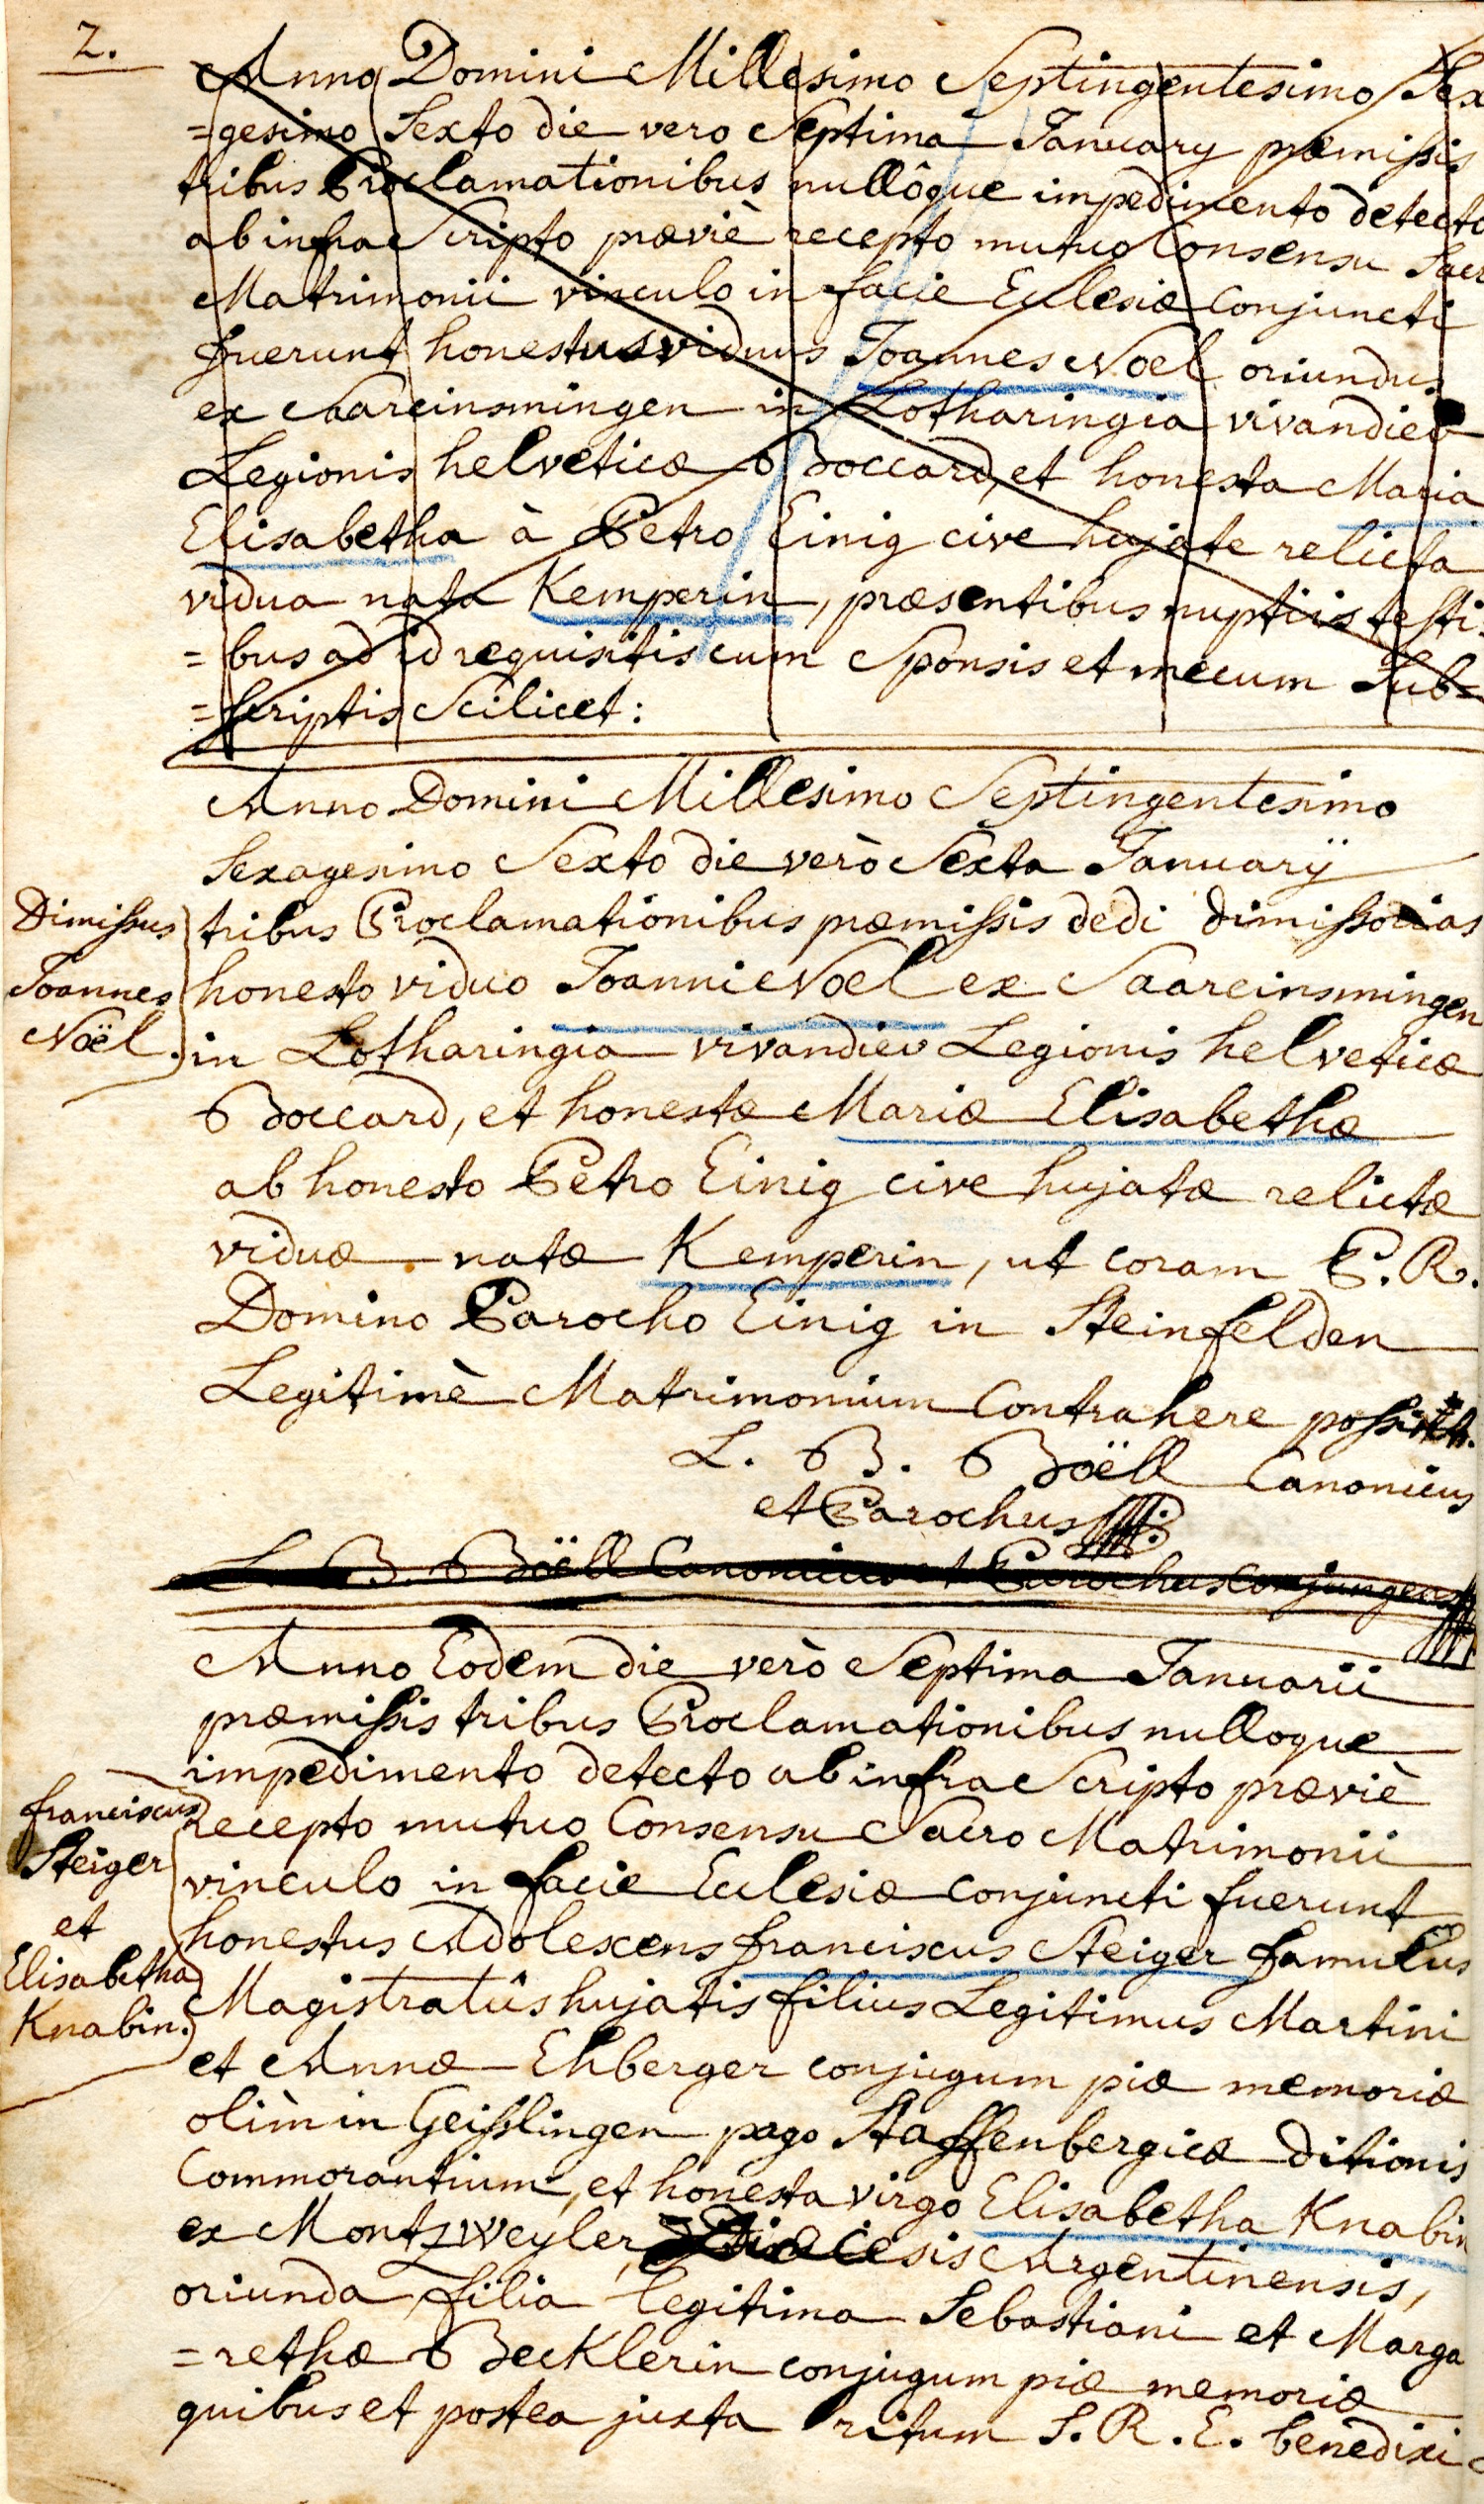 2.
Anno Domini Millesimo Septingentesimo Sex
=gesimo Sexto die vero Septima January præmissis
tribus Proclamationibus nullôque impedimento detecto
ab infra Scripto præviè recepto mutuo Consensu Sacr
Matrimonii vinculo in facie Eclesiæ Conjuncti
fuerunt honestus viduus Joannes Noel oriundus
ex Saareinsmingen in Lotharingia vivandieu
Legionis helveticæ Boccard, et honesta Maria
Elisabetha à Petro Einig cive hujate relicta
vidua nata Kemperin, præsentibus nuptiis testi:
=bus ad id requisitis cum Sponsis et mecum Sub=
=scriptis Scilicet:
Anno Domini Millesimo Septingentesimo
Sexagesimo Sexto die verò Sexta Januarÿ
Dimissus
Joannes
Noël.
tribus Proclamationibus præmissis dedi dimissorias
honesto viduo Joanni Noel ex Saareinsmingen
in Lotharingia vivandieu Legionis helveticæ
Boccard, et honestæ Mariæ Elisabethæ
ab honesto Petro Einig cive hujatæ relictæ
viduæ natæ Kemperin, ut coram P. R.
Domino Parocho Einig in Steinfelden
Legitimè Matrimonium Contrahere possint.
L. B. Boëll Canonicus
et Parochus
L. B. Boëll Canonicus et Parochus conjungens
Anno Eodem die verò Septima Januarii
præmissis tribus Proclamationibus nulloque
impedimento detecto ab infra Scripto præviè
franciscus
Steiger
et
Elisabetha
Knabin.
recepto mutuo Consensu Sacro Matrimonii
vinculo in facie Eclesiæ conjuncti fuerunt
honestus Adolescens franciscus Steiger famulus
Magistratûs hujatis filius Legitimus Martini
et Annæ Ehberger conjugum piæ memoriæ
olim in Geisslingen pago Staffenbergicæ ditionis
Commorantium, et honesta virgo Elisabetha Knabin
ex Montzweyler, Diœcesis Argentinensis,
oriunda filia legitima Sebastiani et Marga
=rethæ Becklerin conjugum piæ memoriæ
quibus et postea juxta ritum S. R. E. benedixi